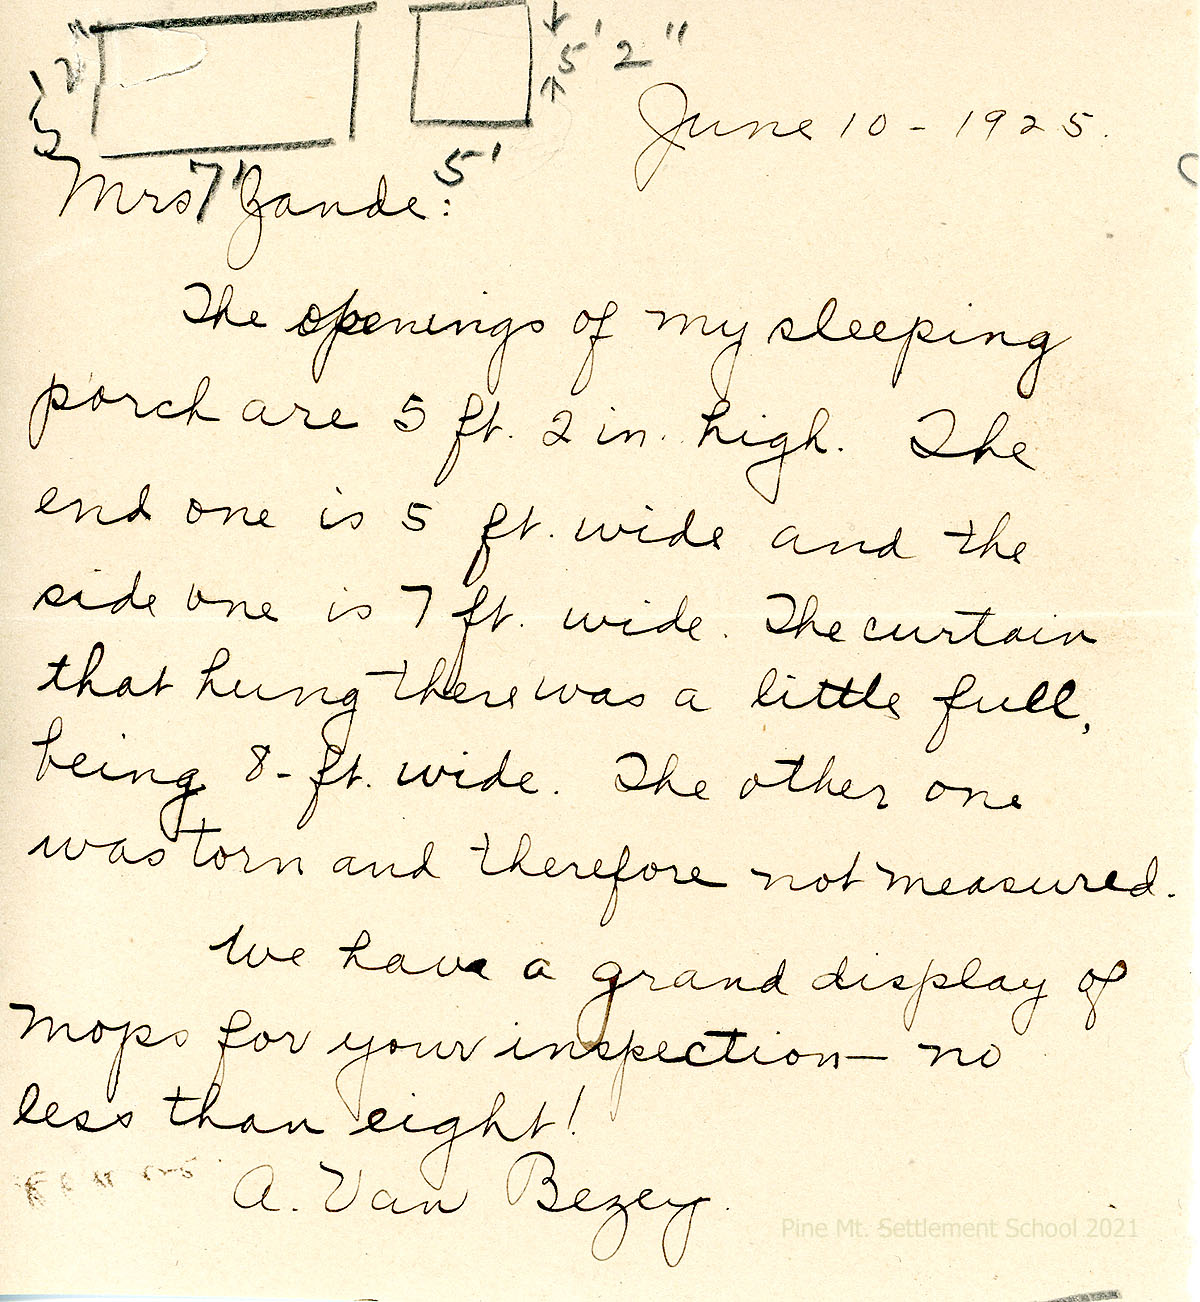 5' 2"
5' 2"
7'
5'
June 10 - 1925.
Mrs Zande:
The openings of my sleeping
porch are 5 ft. 2 in. high. The
end one is 5 ft. wide and the
side one is 7 ft. wide. The curtain
that hung there was a little full,
being 8-ft. wide. The other one
was torn and therefore not measured.
We have a grand display of
mops for your inspection — no
less than eight!
A. Van Bezey.
Pine Mt. Settlement School 2021